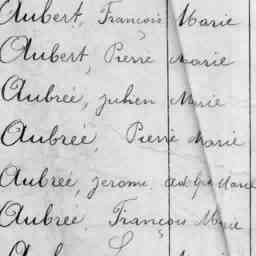 Aubert, François Marie
Aubert, Pierre Marie
Aubreé, Julien Marie
Aubreé, Pierre Marie
Aubreé, Jerome, Marie
Aubreé, François Marie